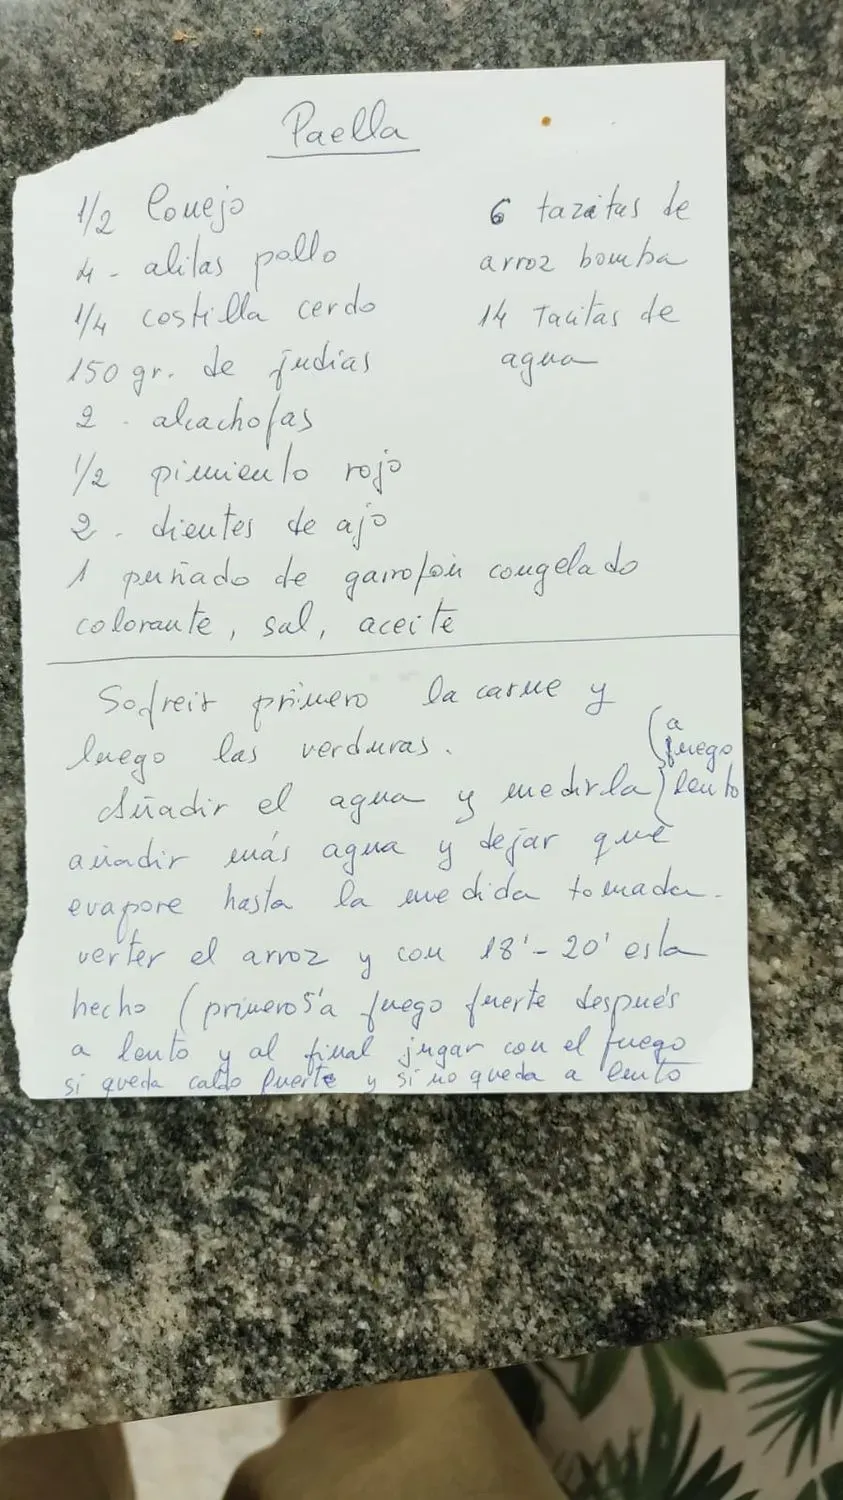 Paella
1/2 Conejo
4 - alitas pollo
1/4 costilla cerdo
150 gr. de judias
2 - alcachofas
1/2 pimiento rojo
2 - dientes de ajo
1 puñado de garrofón congelado
colorante, sal, aceite
6 tazitas de
arroz bomba
14 Tacitas de
agua
Sofreir primero la carne y
luego las verduras.
(a
fuego
lento
Añadir el agua y medirla)
añadir más agua y dejar que
evapore hasta la medida tomada.
verter el arroz y con 18'-20' esta
hecho (primero 5' a fuego fuerte después
a lento y al final jugar con el fuego
si queda caldo fuerte y si no queda a lento